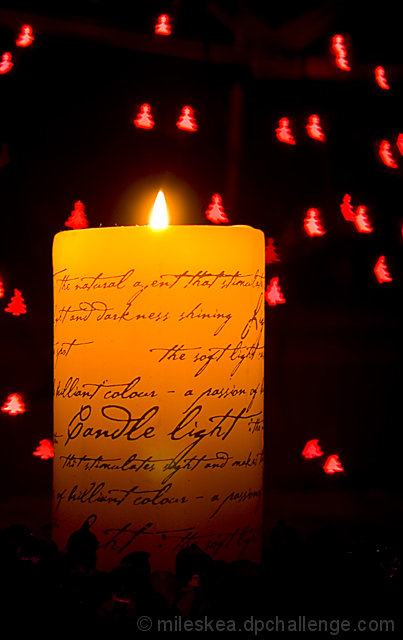 the natural agent that stimulat
st and darkness shining
the soft light
brilliant colour - a passion of b
Candle light
that stimulates sight and make
of brilliant colour - a passion
© mileskea.dpchallenge.com